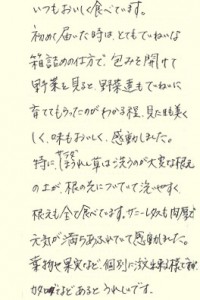 いつもおいしく食べています。
初めて届いた時は、とてもていねいな
箱詰めの仕方で、包みを開けて
野菜を見ると、野菜達もていねいに
育ててもらったのがわかる程、見た目も美く
しく、味もおいしく、感動しました。
特に、サラダほうれん草は洗うのが大変な根元
の土が、根の先についていて洗いやすく
根元も全て食べています。サニーレタスも肉厚で
元気が満ちあふれていて感動しました。
葉物や果実など、個別に
などあると うれしいです。